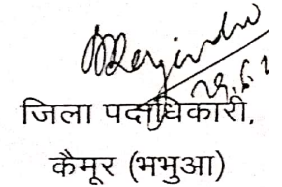 29.6.
जिला पदाधिकारी,
कैमूर (भभुआ)